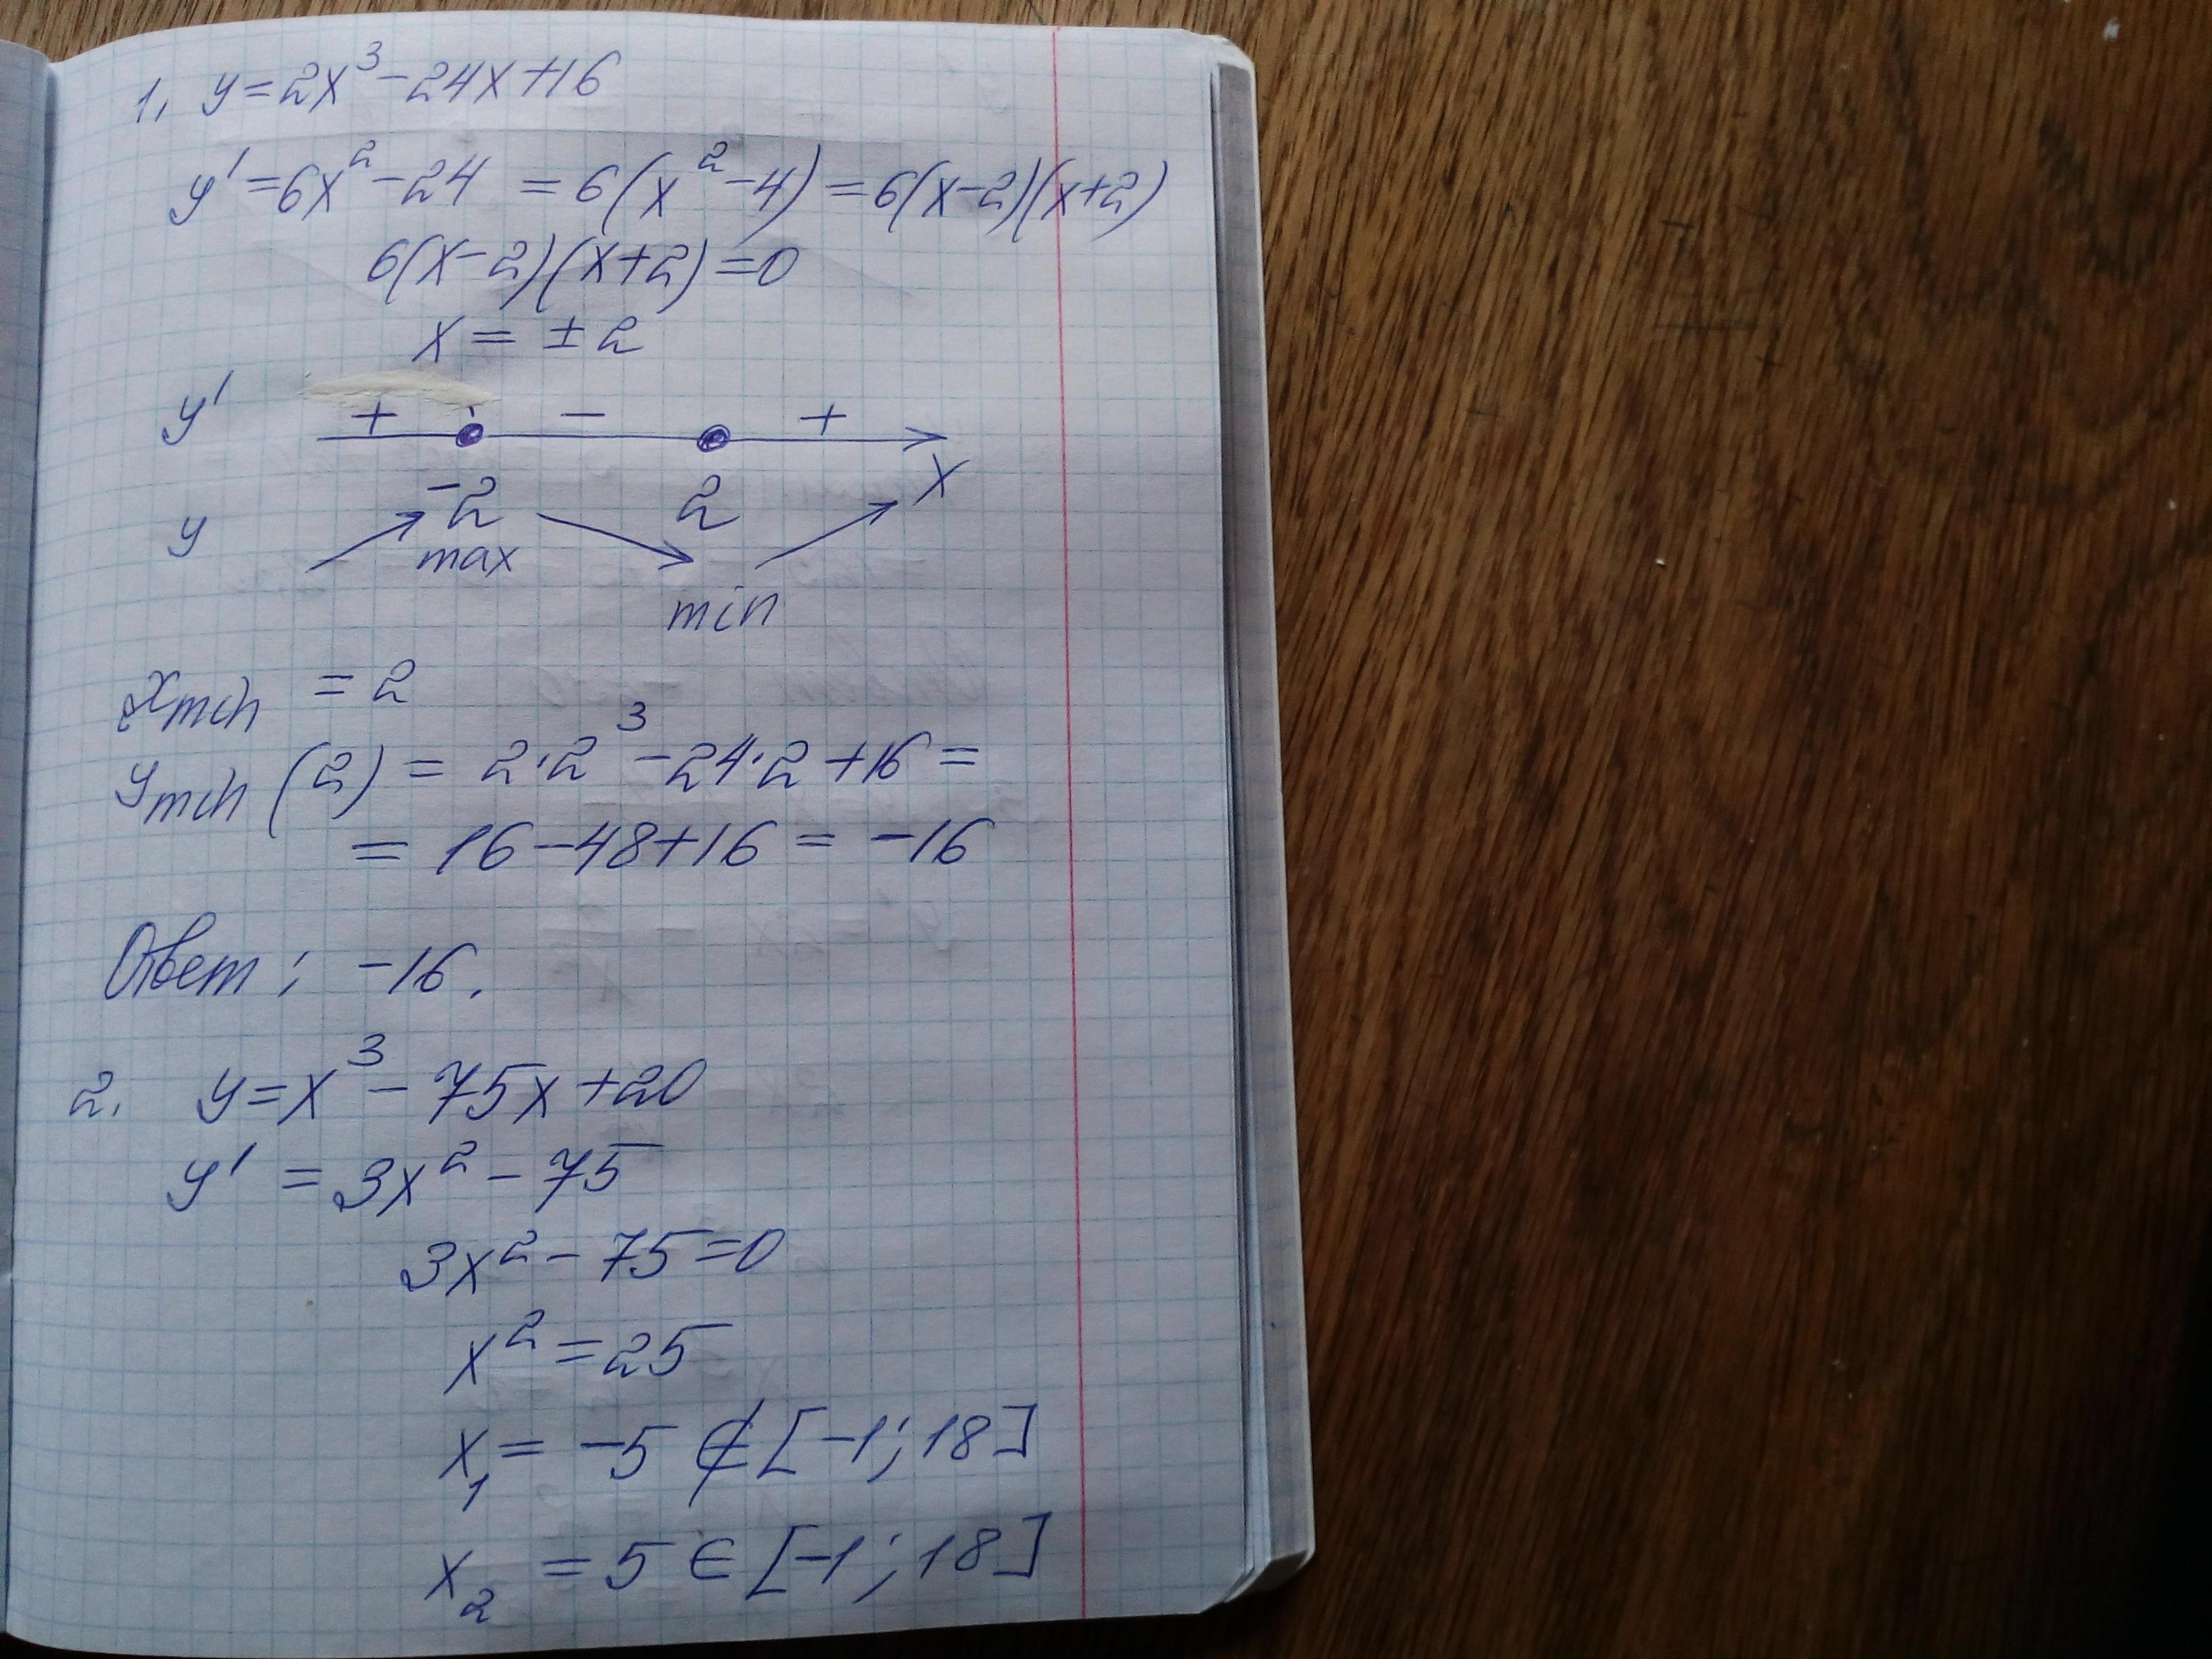 1. y=2x³-24x+16
y'=6x²-24 =6(x²-4)=6(x-2)(x+2)
6(x-2)(x+2)=0
x= ±2
y' + - +
-2 2 x
y max
min
x min = 2
y min (2) = 2·2³-24·2+16=
= 16-48+16 = -16
Ответ: -16.
2. y=x³-75x+20
y' = 3x²-75
3x²-75=0
x²=25
x₁= -5 ∉ [-1; 18]
x₂ = 5 ∈ [-1; 18]